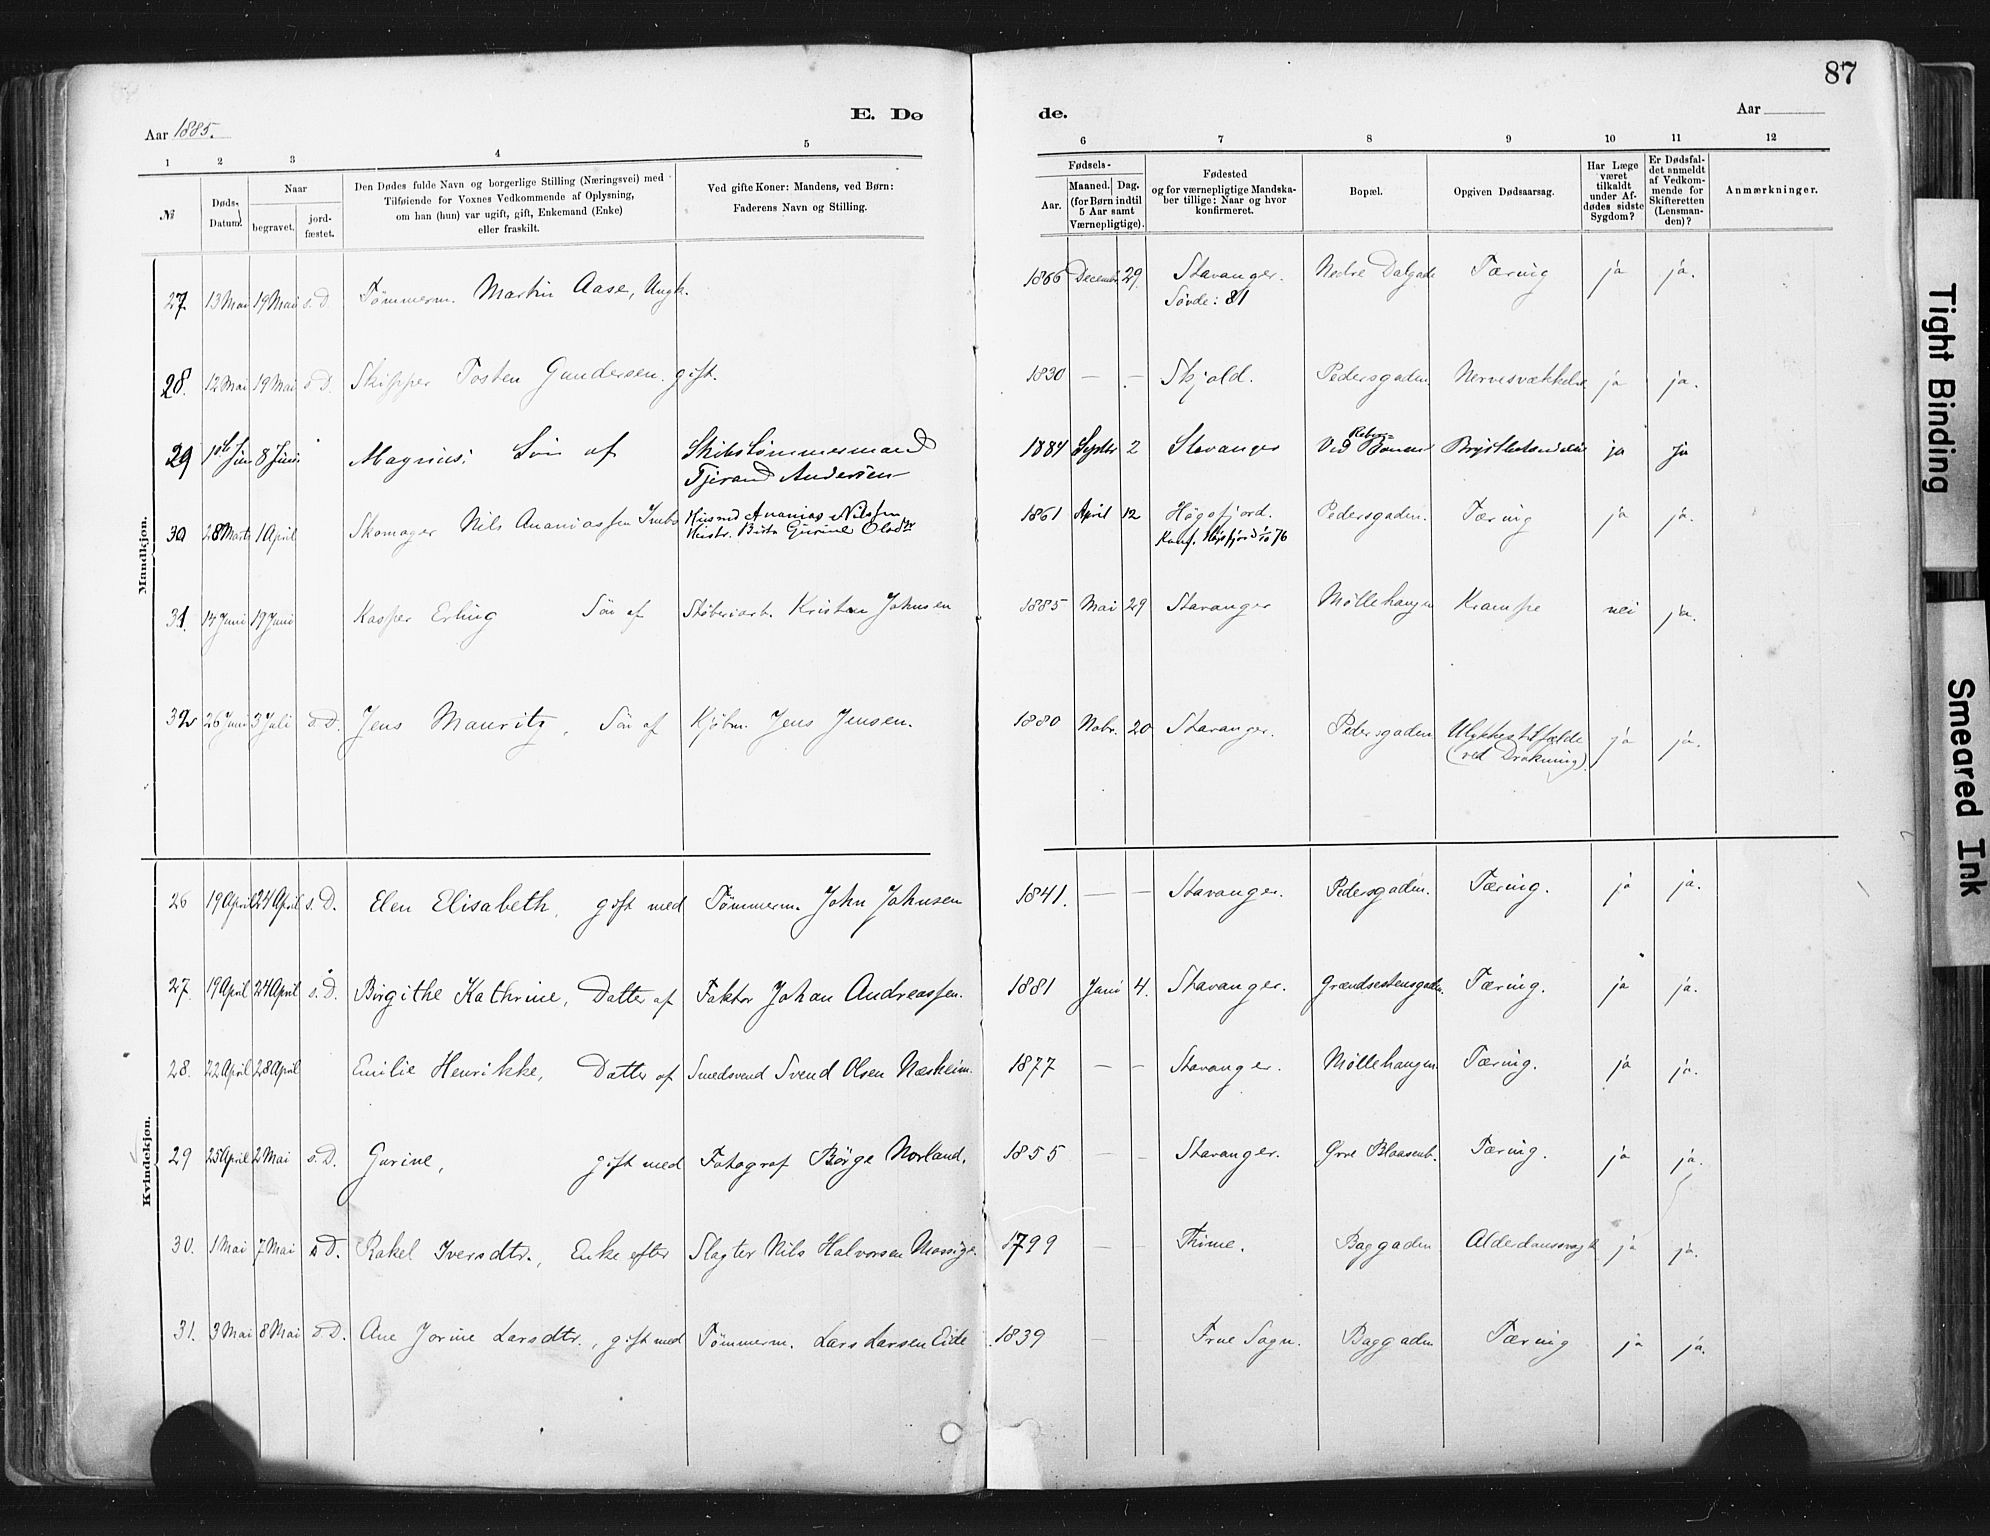 87
E. Dø de.
Aar 1885. Aar
1 2 3 4 5 6 7 8 9 10 11 12
№
Døds-Datum.
Naar
begravet. jord-fæstet.
Den Dødes fulde Navn og borgerlige Stilling (Næringsvei) med
Tilføiende for Voxnes Vedkommende af Oplysning,
om han (hun) var ugift, gift, Enkemand (Enke)
eller fraskilt.
Ved gifte Koner: Mandens, ved Børn:
Faderens Navn og Stilling.
Fødsels-
Aar. Maaned. Dag.
(for Børn indtil
5 Aar samt
Værnepligtige).
Fødested
og for værnepligtige Mandska-
ber tillige: Naar og hvor
konfirmeret.
Bopæl.
Opgiven Dødsaarsag.
Har Læge
været
tilkaldt
under Af-
dødes sidste
Sygdom?
Er Dødsfal-
det anmeldt
af Vedkom-
mende for
Skifteretten
(Lensman-
den)?
Anmærkninger.
Mandkjøn.
27. 13 Mai 19 Mai s. D. Tømmerm. Martin Aase, Ungk. 1866 Decembr. 29. Stavanger. Nedre Dalgade Tæring ja ja.
Søvde: 81
28. 12 Mai 19 Mai s. D. Skipper Tosten Gundersen. gift. 1830 — — Skjold. Pedersgaden. Nervesvækkelse ja ja.
29 1ste Juni 8 Juni Magnus; Søn af Skibstømmermand 1884 Septbr 2 Stavanger Ved Banen ja ja
Tjerand Andersen
30 28 Marts 1 April Skomager Nils Ananiassen Husmd Ananias Nilssen 1861 April 12 Høgsfjord. Pedersgaden. Tæring ja ja.
Hustr. Birta Gurine Olsdtr Konf. Høgsfjord 1/10 76
31. 14 Juni 17 Juni Kasper Erling Søn af Støberiarb. Kristen Johnsen 1885 Mai 29 Stavanger Møllehaugen Krampe nei ja.
32 26 Juni 3 Juli s. D. Jens Mauritz, Søn af Kjøbm. Jens Jensen. 1880 Nobr. 20 Stavanger. Pedersgaden Ulykkestilfælde ja ja.
(ved Drukning).
Kvindekjøn.
26 19 April 24 April s. D. Elen Elisabeth, gift med Tømmerm. John Johnsen 1841. — — Stavanger. Pedersgaden. Tæring. ja ja.
27. 19 April 24 April s. D. Birgithe Kathrine, Datter af Faktor Johan Andreassen. 1881 Juni 4. Stavanger. Grændsestensgaden. Tæring. ja ja.
28. 22 April 28 April Emilie Henrikke, Datter af Smedsvend Svend Olsen Næsheim. 1877 — — Stavanger. Møllehaugen. Tæring. ja ja.
29 25 April 2 Mai s. D. Gurine, gift med Fotograf Børge Norland, 1855 — — Stavanger. Øvre Blaasenb. Tæring. ja ja.
30. 1 Mai 7 Mai s D. Rakel Iversdtr., Enke efter Slagter Nils Halvorsen Mossige. 1799 — — Thime. Baggaden Alderdomssvagh. ja ja.
31. 3 Mai 8 Mai s. D. Ane Jorine Larsdtr., gift med Tømmerm. Lars Larsen Eide 1839 — — Frue Sogn. Baggaden Tæring ja ja.
Tight Binding
Smeared Ink